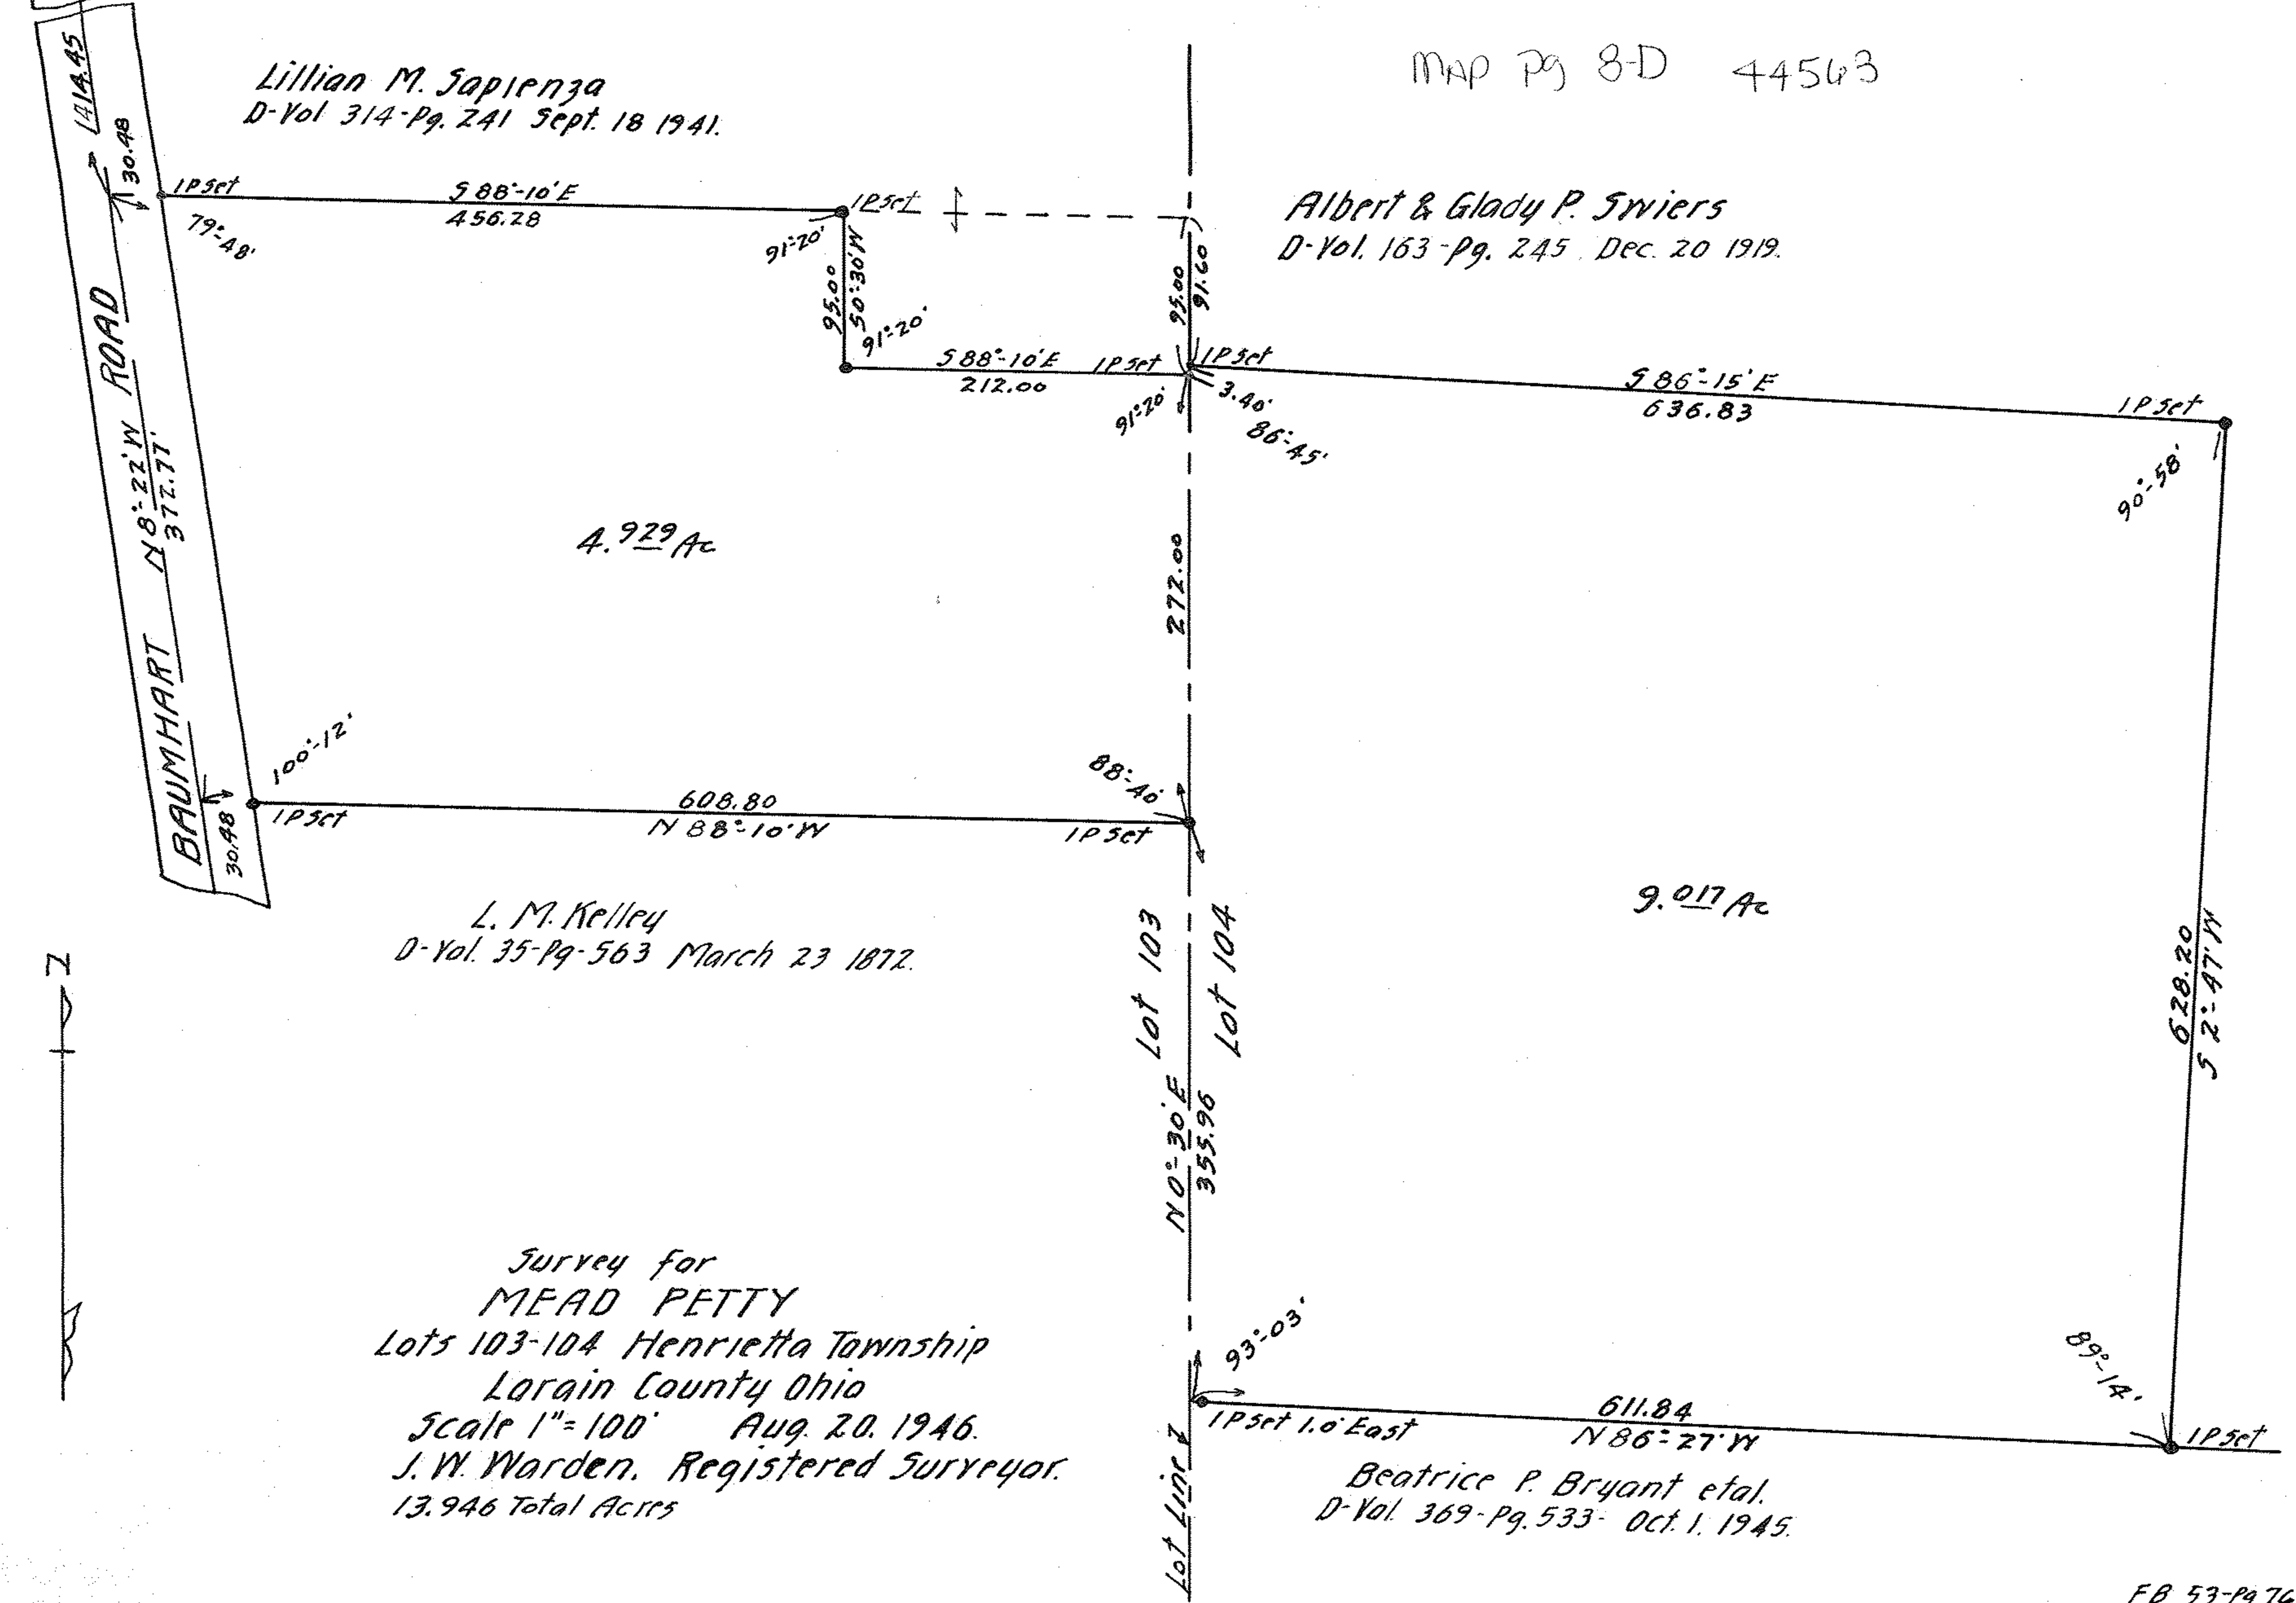 MAP Pg 8-D 44563
Lillian M. Sapienza
D-Vol 314-Pg. 241 Sept. 18 1941.
Albert & Glady P. Swiers
D-Vol. 163-Pg. 245. Dec. 20 1919.
1414.45
30.48
IP Set
S 88°-10' E
456.28
79°-48'
IP Set
91°-20'
95.00
S 0°-30' W
91°-20'
95.00
91.60
S 88°-10' E
212.00
IP Set
IP Set
91°-20'
3.40'
86°-45'
S 86°-15' E
636.83
IP Set
90°-58'
BAUMHART ROAD
N 8°-22' W
372.77'
4.929 Ac
272.00
100°-12'
30.48'
IP Set
608.80
N 88°-10' W
88°-40'
IP Set
L. M. Kelley
D-Vol. 35-Pg-563 March 23 1872.
Lot 103
Lot 104
9.017 Ac
628.20
S 2°-47' W
N 0°-30' E
355.96
Survey for
MEAD PETTY
Lots 103-104 Henrietta Township
Lorain County Ohio
Scale 1"=100' Aug. 20. 1946.
J. W. Warden. Registered Surveyor.
13.946 Total Acres
93°-03'
IP Set 1.0' East
611.84
N 86°-27' W
89°-14'
IP Set
Lot Line
Beatrice P. Bryant etal.
D-Vol. 369-Pg. 533- Oct. 1. 1945.
FB 53-Pg 76